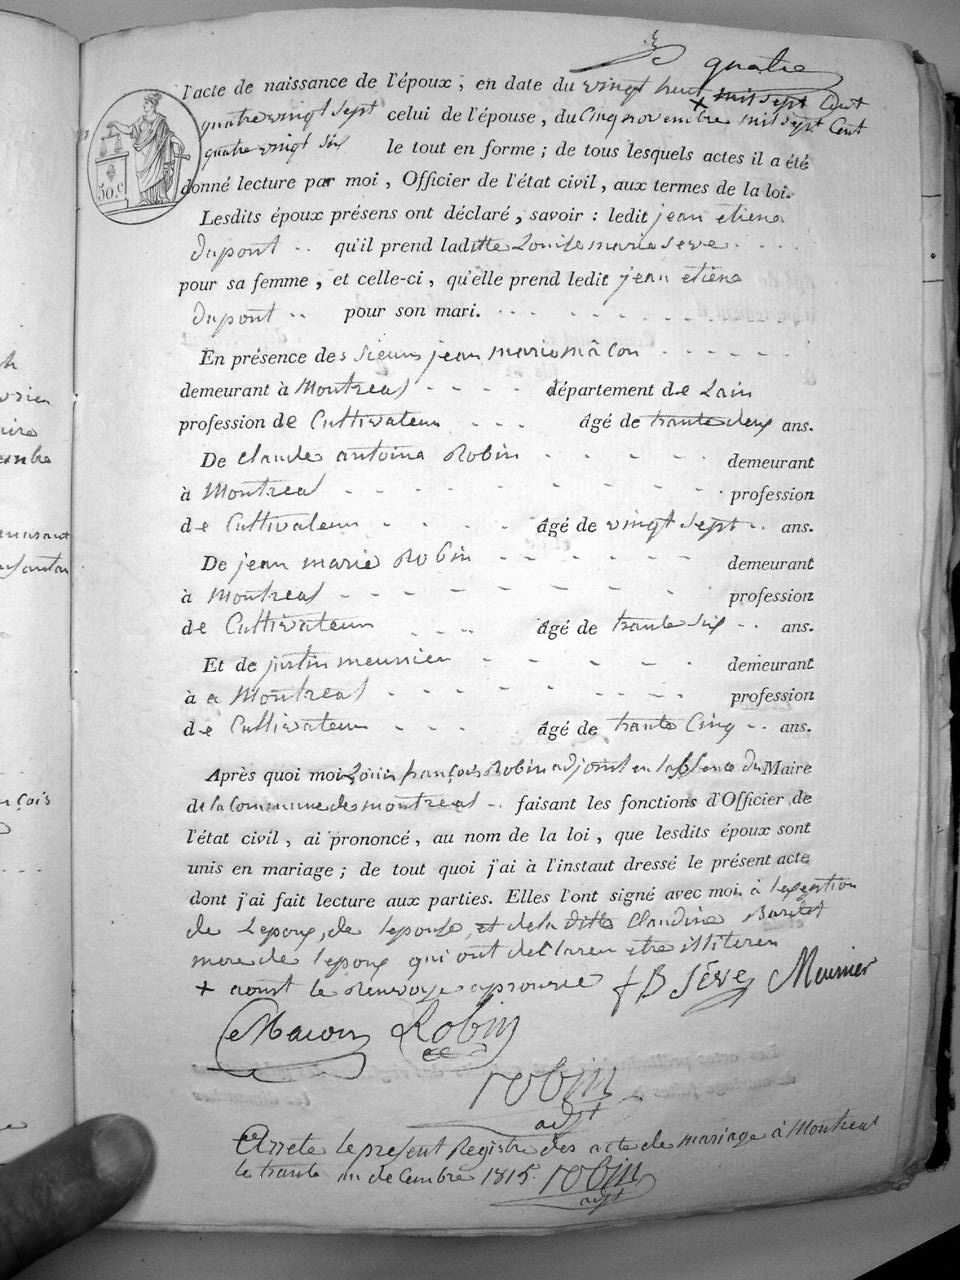 quatre
l'acte de naissance de l'époux ; en date du vingt huit mil sept Cent
quatre vingt sept celui de l'épouse, du Cinq novembre mil sept Cent
quatre vingt six le tout en forme ; de tous lesquels actes il a été
50.c donné lecture par moi, Officier de l'état civil, aux termes de la loi.
Lesdits époux présens ont déclaré, savoir : ledit jean etiene
dupont .. qu'il prend laditte Louise marie seve . . . .
pour sa femme, et celle-ci, qu'elle prend ledit jean etiene
dupont .. pour son mari. . . . . . . . .
En présence des sieurs jean marie mâcon . . . . . .
demeurant à Montreal . . . . département de Lain
profession de Cultivateur . . . âgé de trante deux ans.
De claude antoine Robin . . . . . demeurant
à Montreal - - - - - - - - profession
de Cultivateur . . . . . âgé de vingt sept .. ans.
De jean marie Robin - - - - - - demeurant
à Montreal - - - - - - - - profession
de Cultivateur . . . . âgé de trante six .. ans.
Et de justin meunier - - - - - demeurant
à a Montreal - - - - - - - profession
de Cultivateur . . . . âgé de trante Cinq .. ans.
Après quoi moi Louis françois Robin adjoint en labsence du Maire
de la Commune de montreal .. faisant les fonctions d'Officier de
l'état civil, ai prononcé, au nom de la loi, que lesdits époux sont
unis en mariage ; de tout quoi j'ai à l'instaut dressé le présent acte
dont j'ai fait lecture aux parties. Elles l'ont signé avec moi à lexception
de Lepoux, de lepouse, et de la ditte Claudine
mere de lepoux qui ont declarer etre illiteren
+ aoust le Renvoye aprouvé J B Séve Meunier
Macon Robin
robin
adjt
Arrete le present Registre des acte de mariage à Montreal
le trante un decembre 1815. robin
adjt